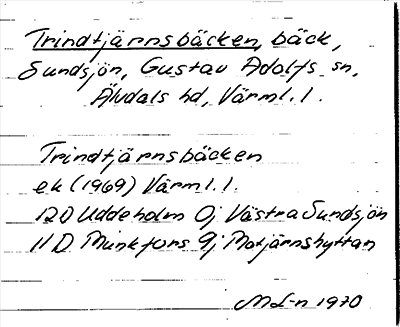 Trindtjärnsbäcken, bäck,
Sundsjön, Gustav Adolfs sn,
Älvdals hd, Värml. l.
Trindtjärnsbäcken
ek (1969) Värml. l.
12D Uddeholm 0j Västra Sundsjön
11D Munkfors 9j Motjärnshyttan
ML-n 1970